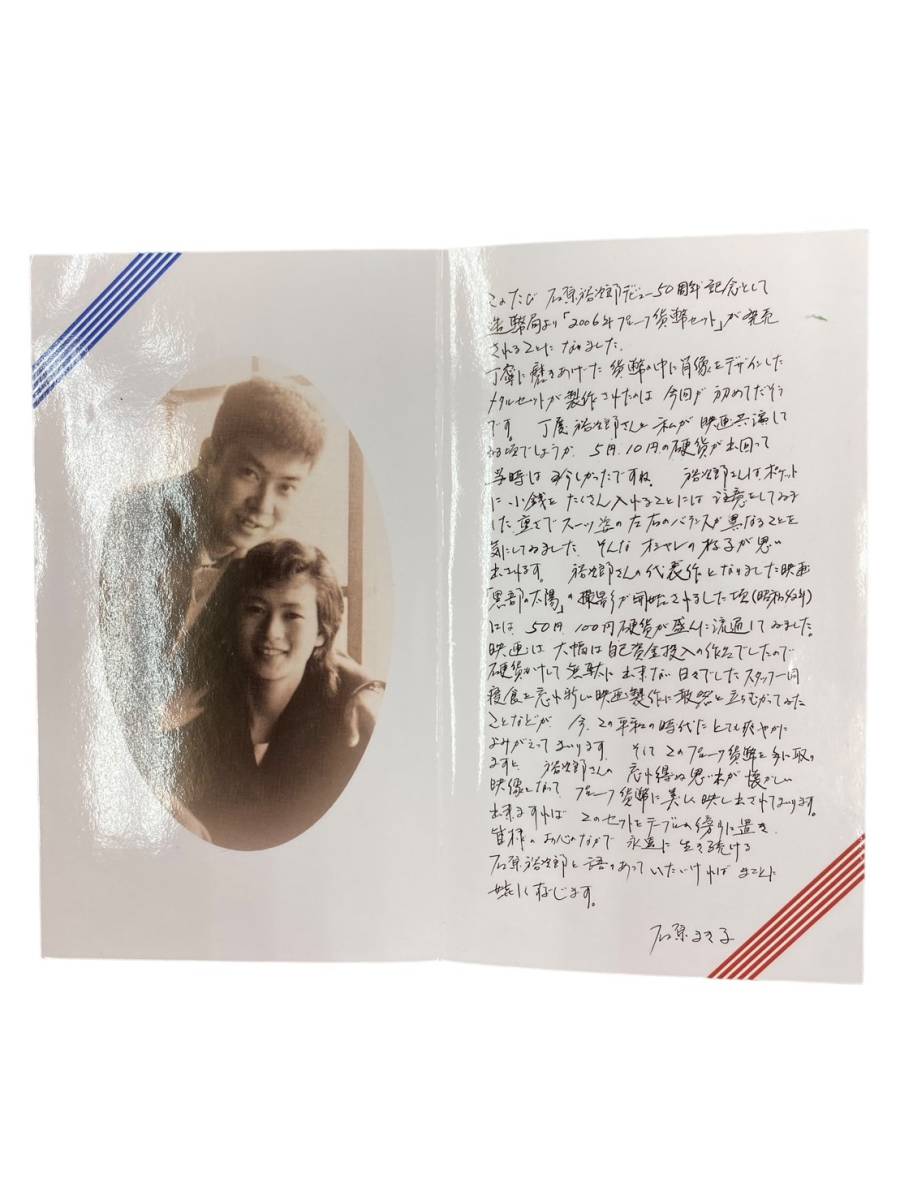 このたび 石原裕次郎デビュー50周年記念として
造幣局より「2006年プルーフ貨幣セット」が発売
されることになりました。
丁寧に磨きあげた 貨幣の中に肖像をデザインした
メダルセットが製作されたのは 今回が初めてだそう
です。 丁度 裕次郎さんと私が 映画共演して
る頃でしょうか、 5円、10円の硬貨が出回って
当時は珍しかったですね。 裕次郎さんはポケット
に小銭を たくさん入れることには 注意をしてゐま
した。重さでスーツ姿の左右のバランスが異なることを
気にしてゐました。そんな オシャレの様子が思い
出されます。 裕次郎さんの代表作となりました映画
「黒部の太陽」の撮影が開始されました頃(昭和42年)
には、50円、100円硬貨が盛んに流通してゐました。
映画は 大幅な自己資金投入の作品でしたので
硬貨かけして無駄に出来ない日々でした。スタッフ一同
寝食を忘れ新しい映画製作に敢然と立ちむかってゐた
ことなどが 今、この平和の時代だととても爽やかに
よみがえってまいります。 そして このプルーフ貨幣を手に取り
ますと、 裕次郎さんの 忘れ得ぬ思い出が懐かしい
映像となって プルーフ貨幣に美しく映し出されてまいります。
出来ますれば このセットをテーブルの傍らに置き
皆様のお心のなかで 永遠に生き続ける
石原裕次郎と語りあっていただければ まことに
嬉しく存じます。
石原まき子